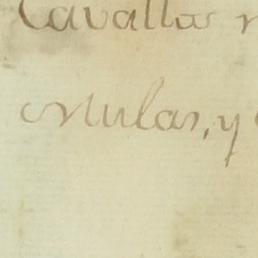 Cavallos
Mulas, y